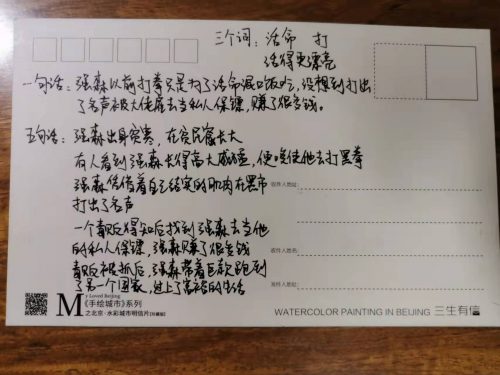 三个词：活命 打
活得更漂亮
一句话：强森以前打拳只是为了活命混口饭吃，没想到打出
了名声被大佬雇去当私人保镖，赚了很多钱。
五句话：强森出身贫寒，在贫民窟长大
有人看到强森长得高大威猛，便唆使他去打黑拳
强森凭借着自己结实的肌肉在黑市
打出了名声
一个毒贩得知后找到强森去当他
的私人保镖，强森赚了很多钱
毒贩被抓后，强森带着巨款跑到
了另一个国家，过上了富裕的生活
收件人地址：
收件人姓名：
寄件人地址：
My Loved Beijing
《手绘城市》系列
之北京·水彩城市明信片
WATERCOLOR PAINTING IN BEIJING 三生有信